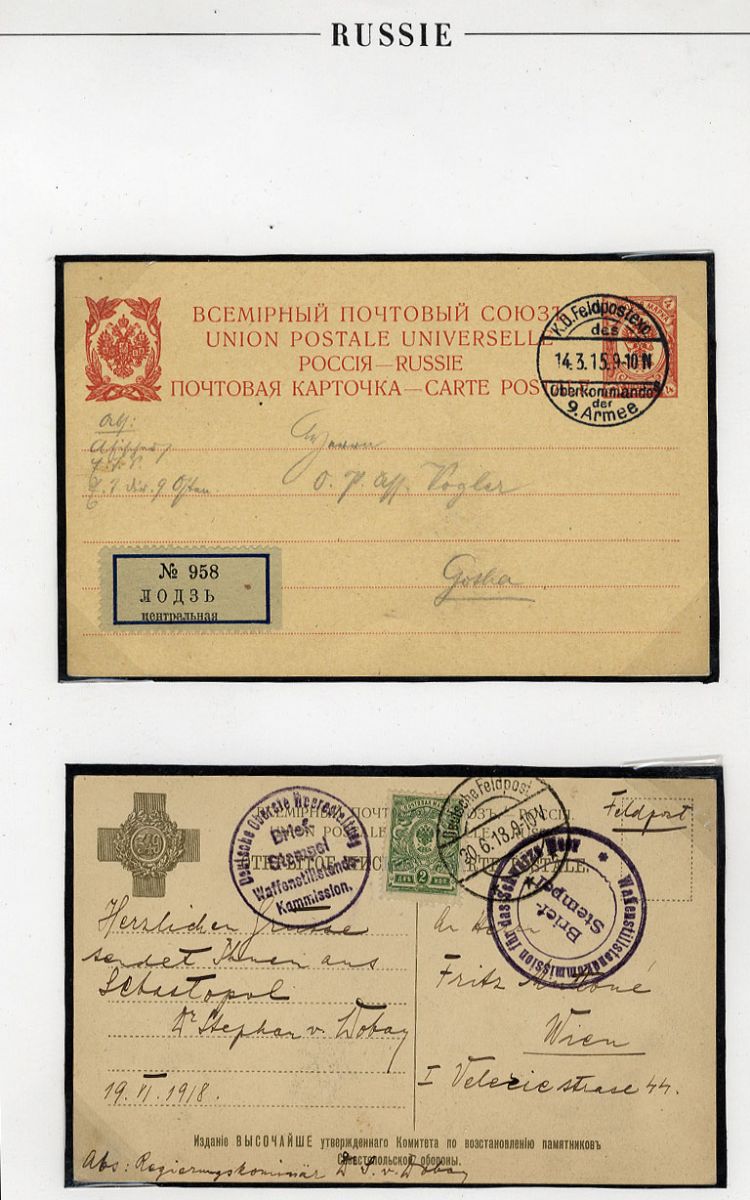 RUSSIE
ВСЕМІРНЫЙ ПОЧТОВЫЙ СОЮЗЪ
UNION POSTALE UNIVERSELLE
РОССІЯ—RUSSIE
ПОЧТОВАЯ КАРТОЧКА—CARTE POSTALE
K.D. Feldpostexp.
des
14.3.15.9-10 N
Oberkommandos
der
9. Armee
Abs:
Herrn
Vogler
Gotha
№ 958
ЛОДЗЬ
центральная
Deutsche Oberste Heeresleitung
Brief
Stempel
Waffenstillstands-
Kommission.
2
Deutsche Feldpost
20.6.18.9-10V
Feldpost
Waffenstillstandcommission für das Schwarze Meer
Brief-
Stempel
Herzlichen Grüsse
sendet Ihnen aus
Sebastopol
Dr Stephan v. Dobay
19.VI.1918.
An Herrn
Fritz
Wien
I Velerie strase 44.
Изданіе ВЫСОЧАЙШЕ утвержденнаго Комитета по возстановленію памятниковъ
Севастопольской обороны.
Abs: Regierungskomissär Dr S. v. Dobay